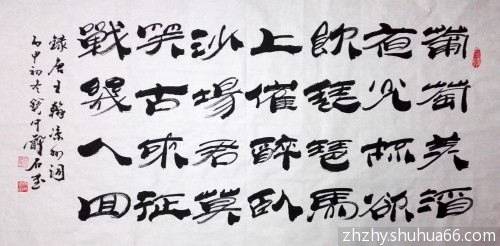 葡萄美酒
夜光杯欲
飲琵琶馬
上催醉臥
沙場君莫
笑古來征
戰幾人回
錄唐王翰涼州詞
丙申初冬
zhzhy.shuhua66.com